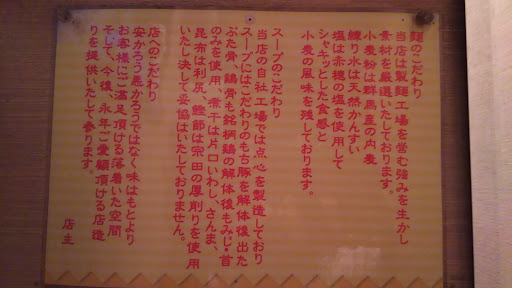 麺のこだわり
当店は製麺工場を営む強みを生かし
素材を厳選いたしております。
小麦粉は群馬産の内麦
練り水は天然かんすい
塩は赤穂の塩を使用して
シャキッとした食感と
小麦の風味を残しております。
スープのこだわり
当店の自社工場では点心を製造しており
スープにはこだわりのもち豚を解体後出た
ぶた骨、鶏骨も銘柄鶏の解体後もみじ・首
のみを使用、煮干は片口いわし、さんま、
昆布は利尻、鰹節は宗田の厚削りを使用
いたし決して妥協はいたしておりません。
店へのこだわり
安かろう悪かろうではなく味はもとより
お客様にご満足頂ける落着いた空間
そして、今後、永年ご愛顧頂ける店造
りを提供いたして参ります。
店主